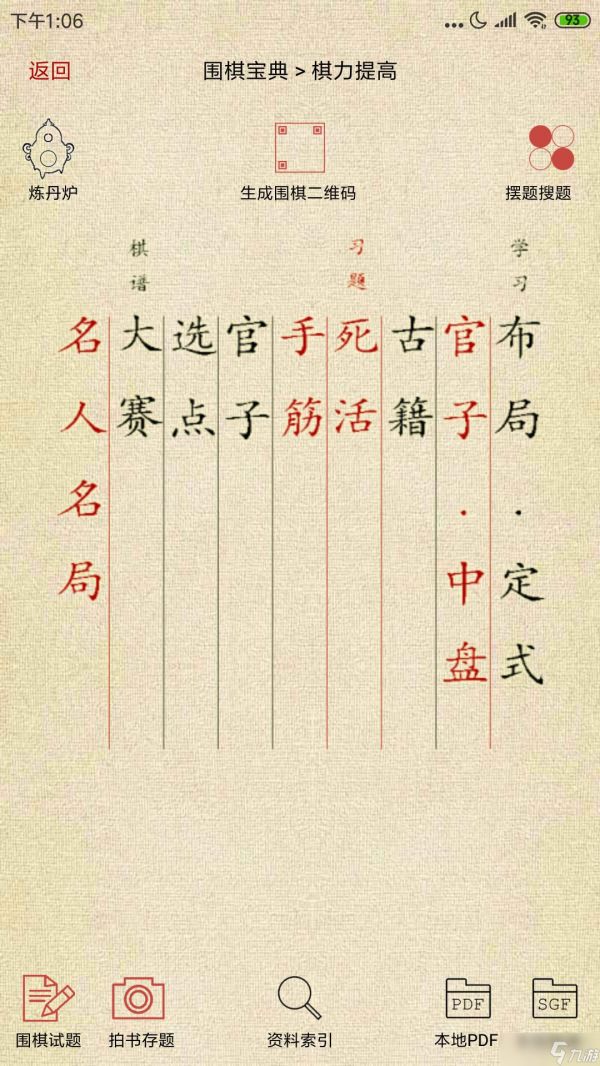 下午1:06
93
返回
围棋宝典 > 棋力提高
炼丹炉
生成围棋二维码
摆题搜题
学习
习题
棋谱
布局·定式
官子·中盘
古籍
死活
手筋
官子
选点
大赛
名人名局
围棋试题
拍书存题
资料索引
PDF
本地PDF
SGF
九游